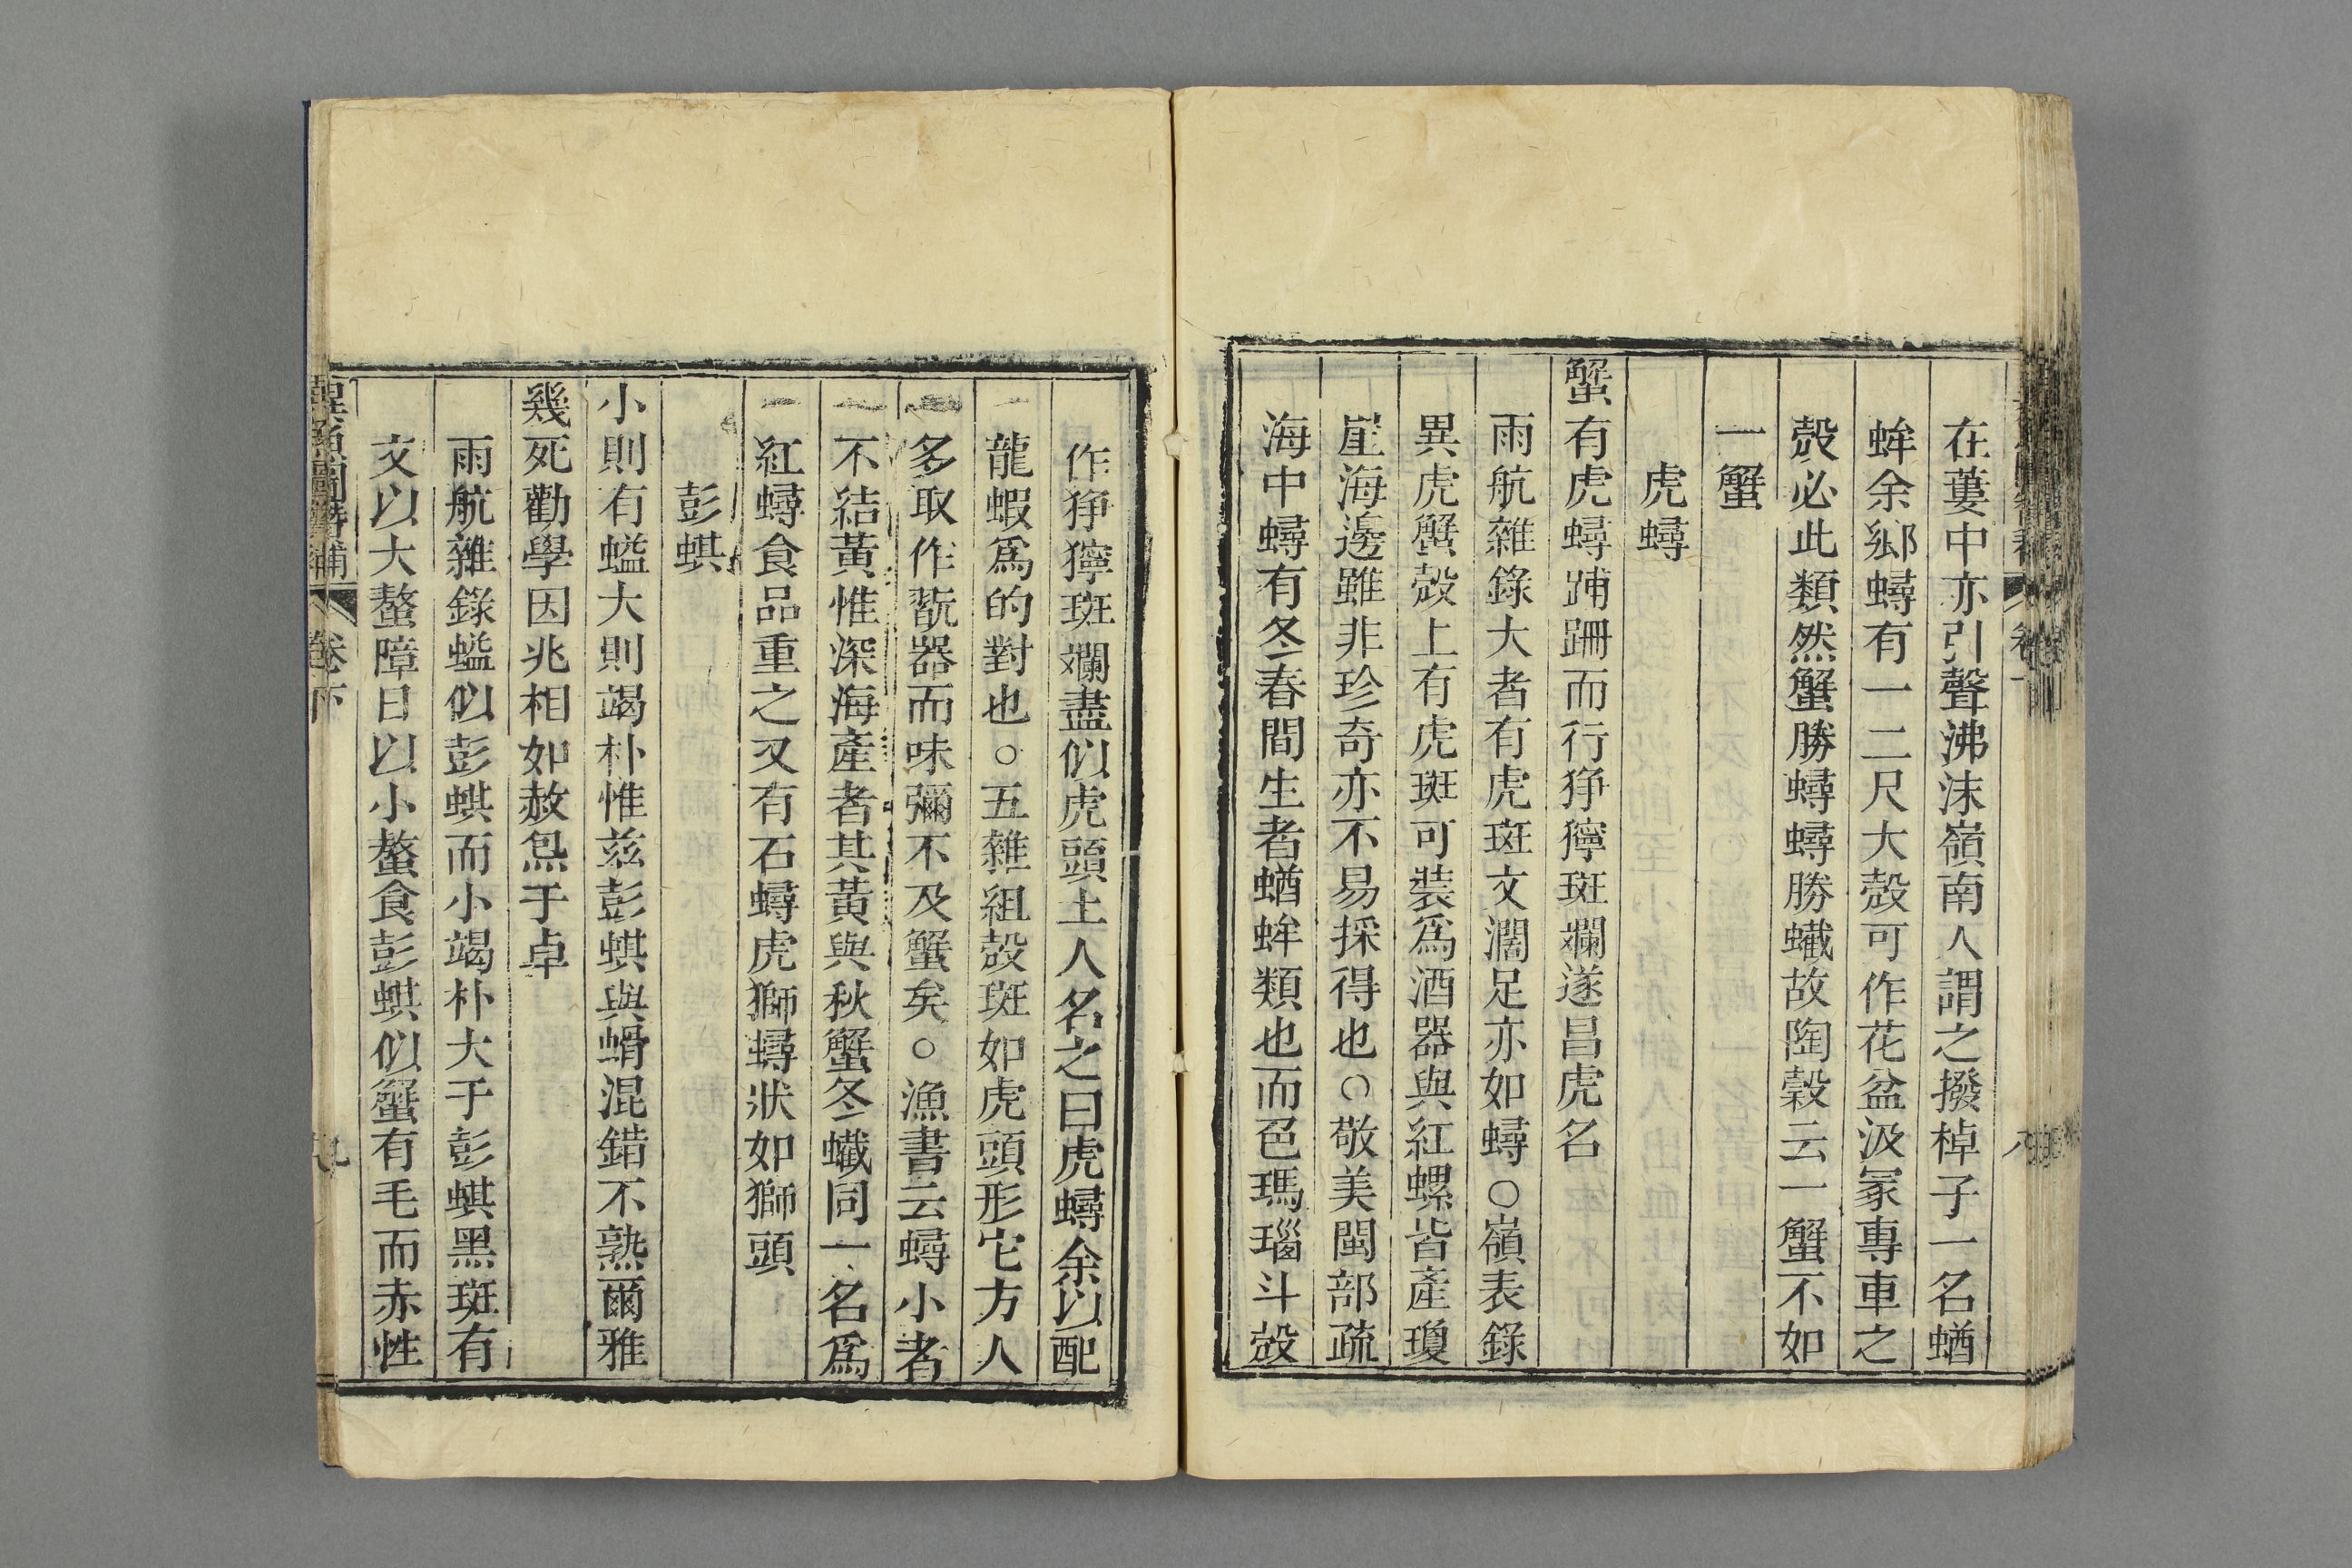 在蔞中亦引聲沸沫嶺南人謂之撥棹子一名蝤
蛑余鄉蟳有一二尺大殼可作花盆汲冢專車之
殼必此類然蟹勝蟳蟳勝蠘故陶穀云一蟹不如
一蟹
虎蟳
蟹有虎蟳踊跚而行猙獰斑斕遂昌虎名
雨航雜錄大者有虎斑文濶足亦如蟳○嶺表錄
異虎蟹殼上有虎斑可裝爲酒器與紅螺皆產瓊
崖海邊雖非珍奇亦不易採得也○敬美閩部疏
海中蟳有冬春間生者蝤蛑類也而色瑪瑙斗殼
作猙獰斑斕盡似虎頭土人名之曰虎蟳余以配
龍蝦爲的對也○五雜組殼斑如虎頭形它方人
多取作翫器而味彌不及蟹矣○漁書云蟳小者
不結黃惟深海產者其黃與秋蟹冬蠘同一名爲
紅蟳食品重之又有石蟳虎獅蟳狀如獅頭
彭蜞
小則有螠大則竭朴惟茲彭蜞與蝟混錯不熟爾雅
幾死勸學因兆相如赦炰于卓
雨航雜錄螠似彭蜞而小竭朴大于彭蜞黑斑有
文以大螯障日以小螯食彭蜞似蟹有毛而赤性
異魚圖贊補 卷下 九